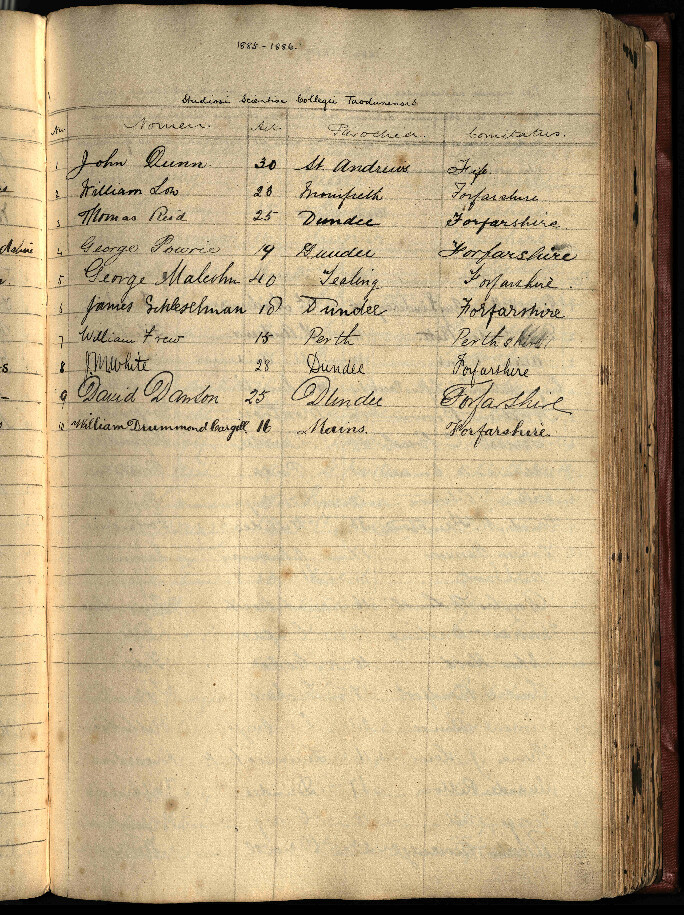 1885-1886.
Studiosi Scientiae Collegii Taodunensis
No. Nomen. Aet. Parochia. Comitatus.
1 John Dunn. 30 St. Andrews Fife
2 William Low 20 Monifieth Forfarshire
3 Thomas Reid 25 Dundee Forfarshire.
4 George Powrie 19 Dundee Forfarshire
5 George Malcolm 40 Tealing Forfarshire.
6 James Eshleselman 18 Dundee Forfarshire
7 William Frew 15 Perth Perthshire
8 J. M. White 28 Dundee Forfarshire
9 David Dawson 25 Dundee Forfarshire
10 William Drummond Cargill 16 Mains. Forfarshire.